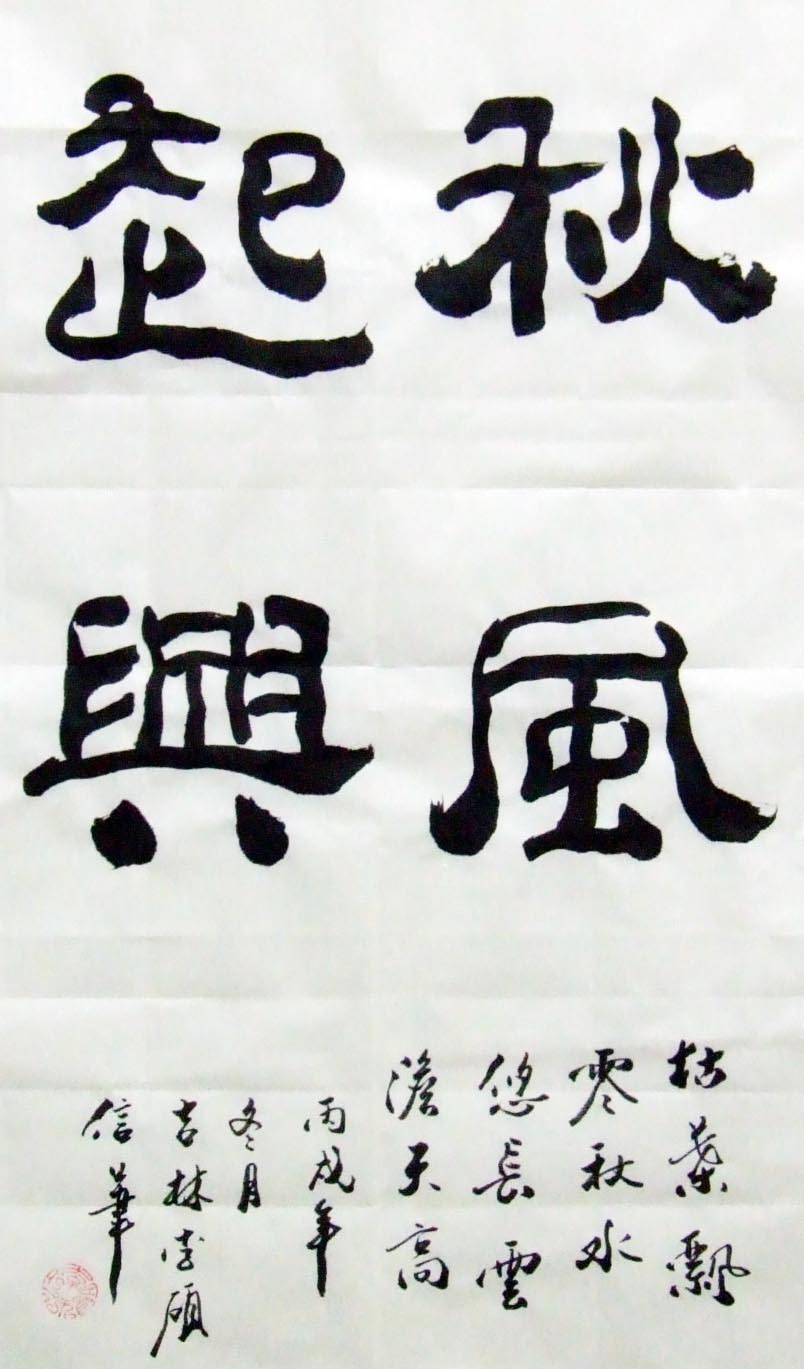 秋風
起興
枯葉飄
零秋水
悠長雲
澹天高
丙戌年
冬月
吉林宏碩
信筆